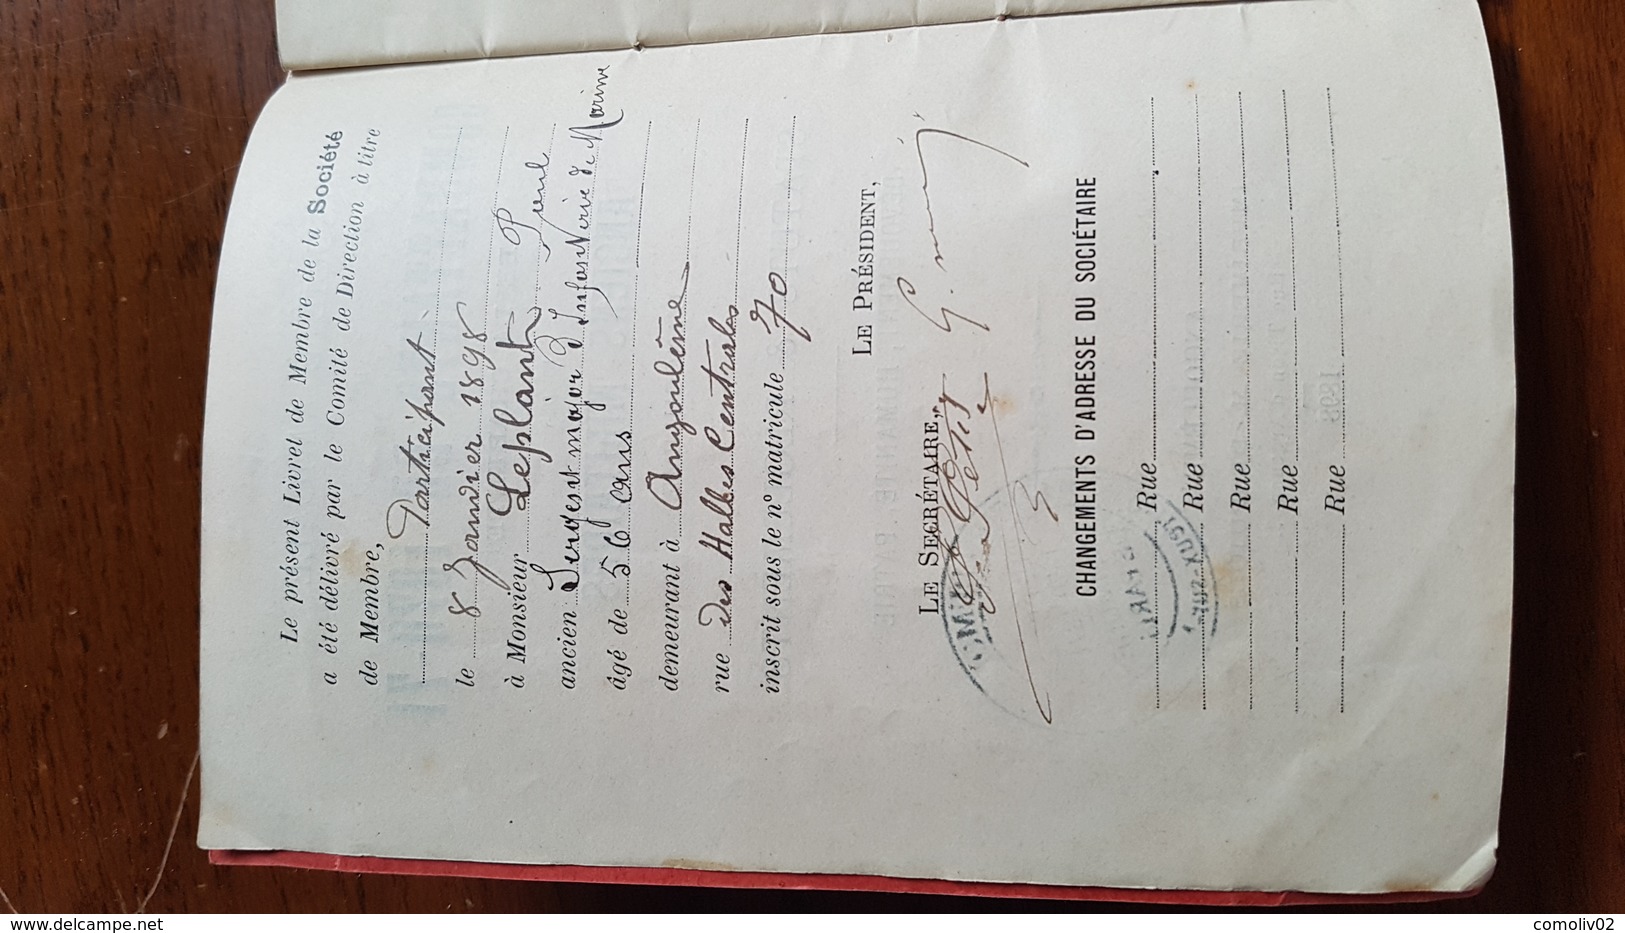 Le présent Livret de Membre de la Société
a été délivré par le Comité de Direction à titre
de Membre,
Participant
le 8 Janvier 1898
à Monsieur Leplant Paul
ancien Sergent major d'Infanterie de Marine
âgé de 56 ans
demeurant à Angoulême
rue des Halles Centrales
inscrit sous le n° matricule 70
LE PRÉSIDENT,
LE SECRÉTAIRE,
CHANGEMENTS D'ADRESSE DU SOCIÉTAIRE
Rue
Rue
Rue
Rue
Rue
www.delcampe.net
comoliv02